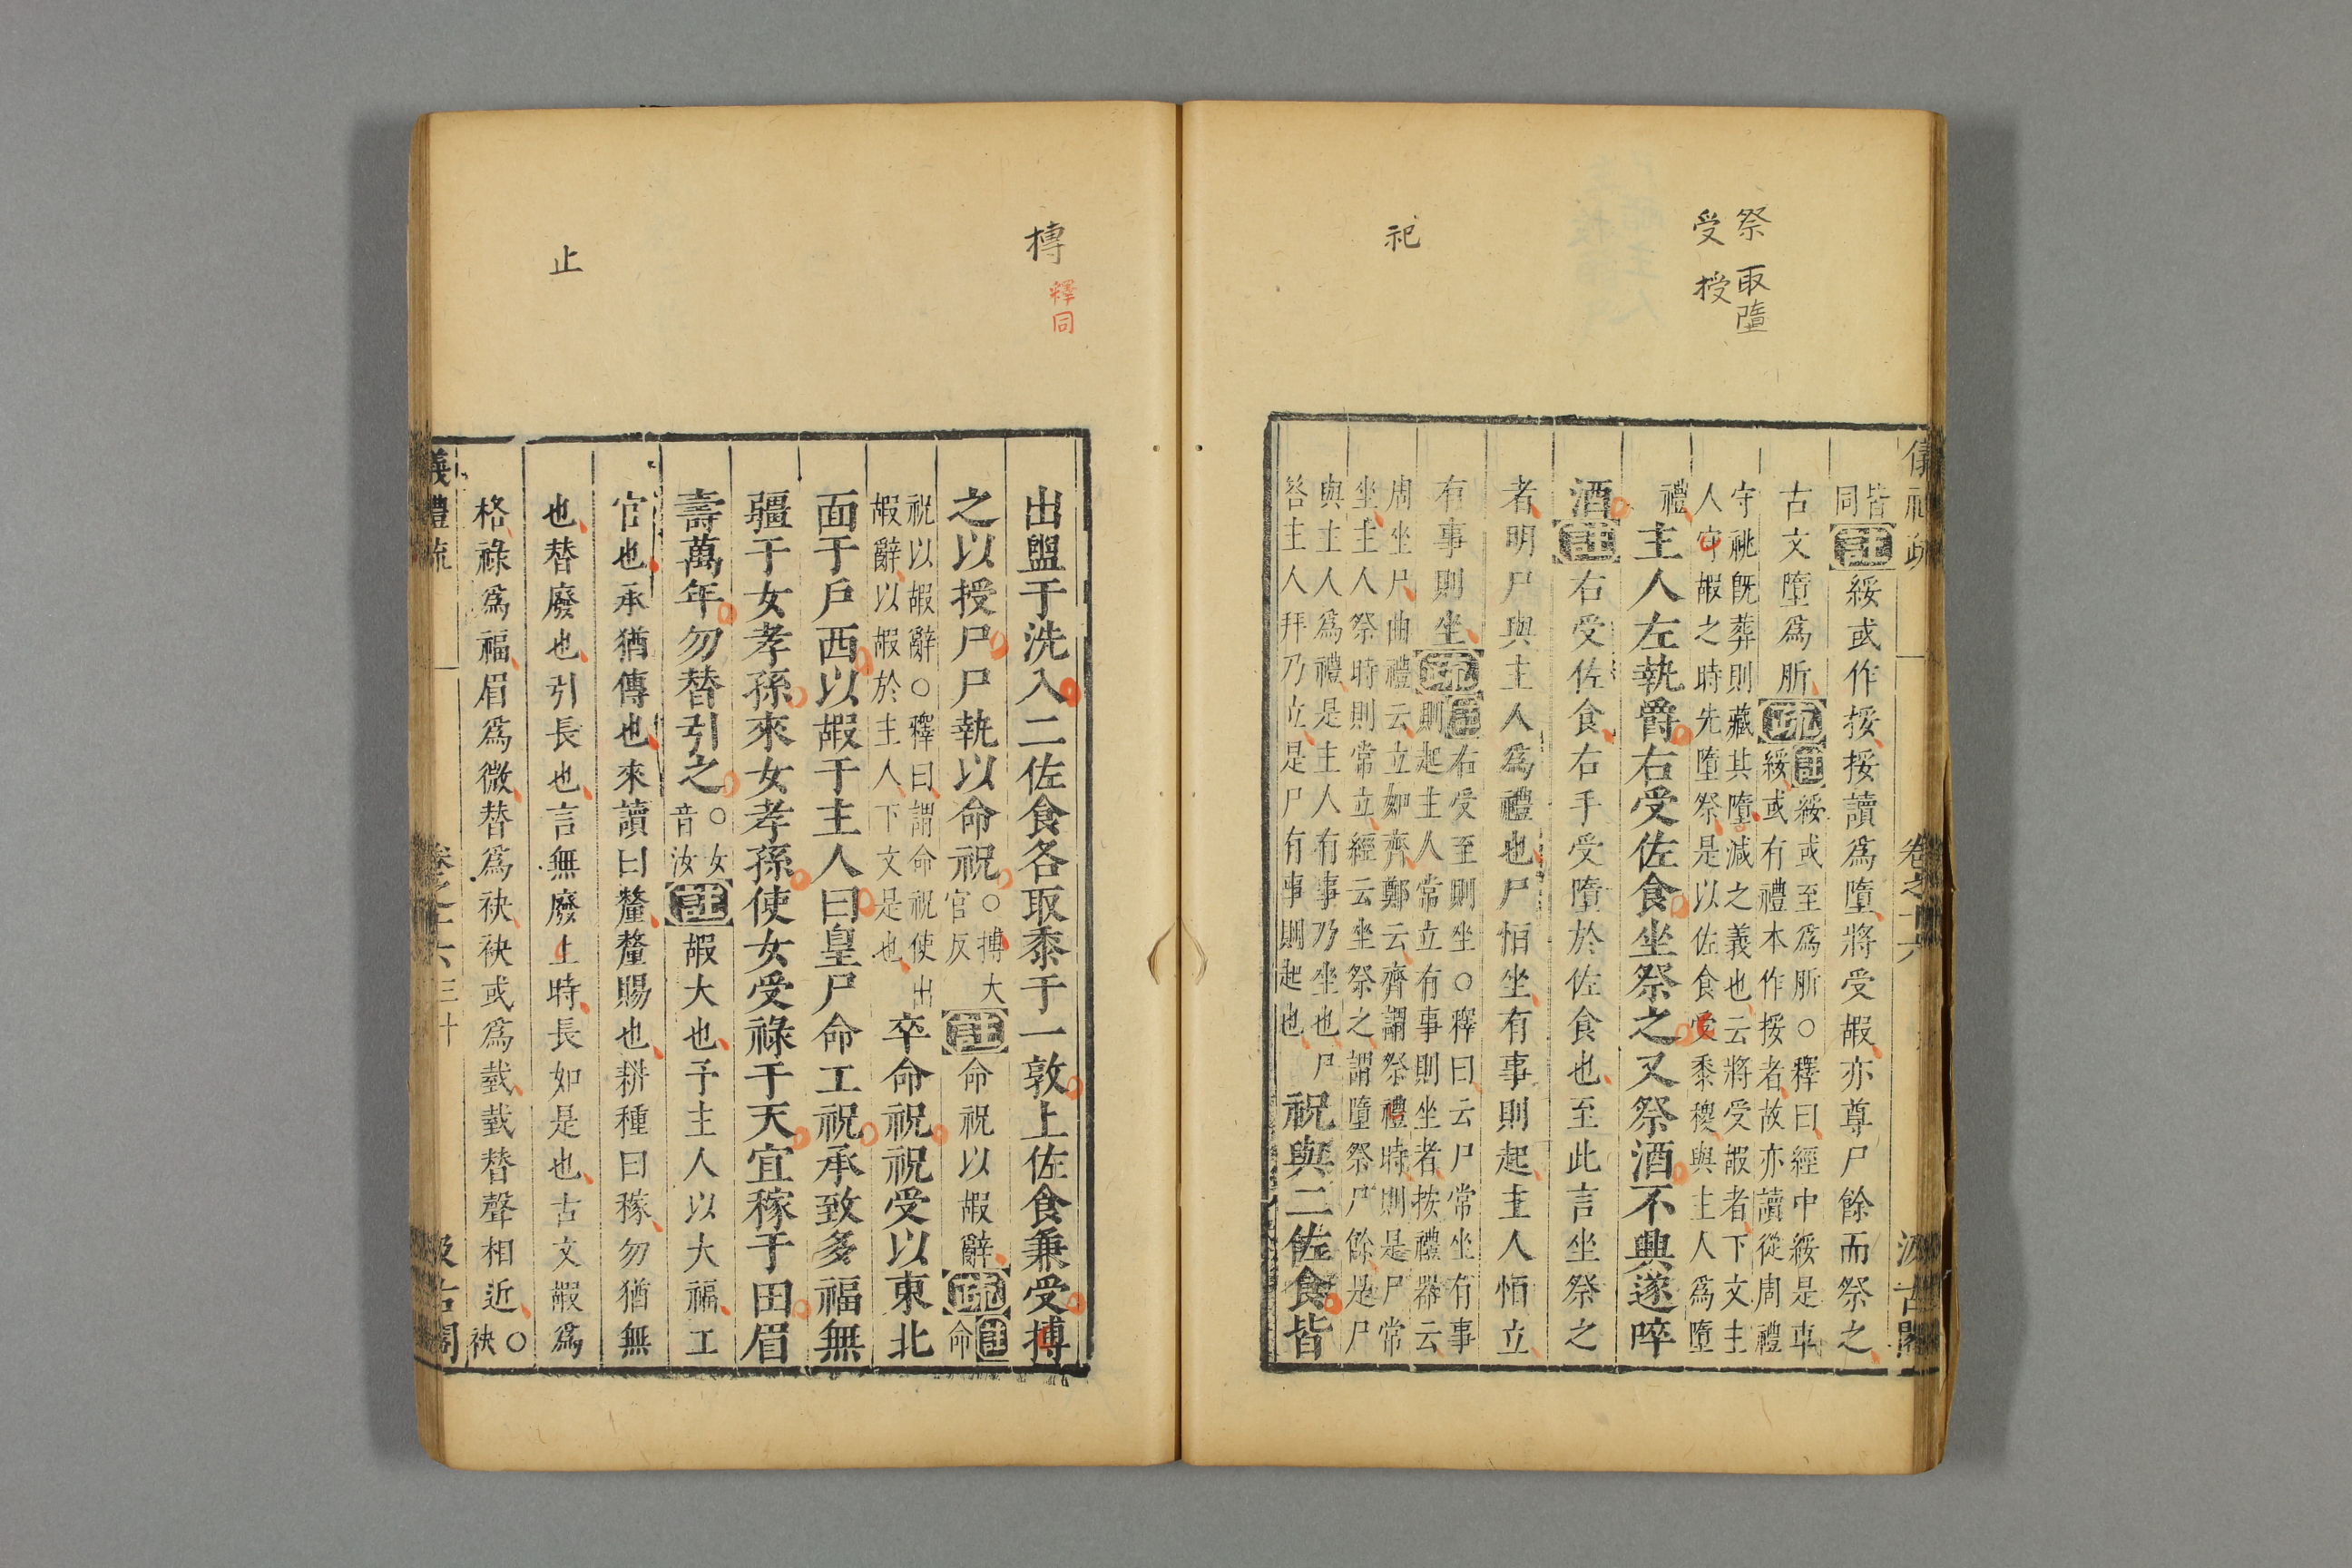 祭 取墮
受 授
祀
儀禮疏 卷之十六 汲古閣
皆
同註綏或作挼挼讀爲墮將受嘏亦尊尸餘而祭之
古文墮爲斦疏註綏或至爲斦○釋曰經中綏是車
綏或有禮本作挼者故亦讀從周禮
守祧旣葬則藏其墮減之義也云將受嘏者下文主
人宁嘏之時先墮祭是以佐食受黍稷與主人爲墮
禮主人左執爵右受佐食坐祭之又祭酒不興遂啐
酒註右受佐食右手受墮於佐食也至此言坐祭之
者明尸與主人爲禮也尸恒坐有事則起主人恒立
有事則坐疏註右受至則坐○釋曰云尸常坐有事
則起主人常立有事則坐者按禮器云
周坐尸曲禮云立如齊鄭云齊謂祭禮時則是尸常
坐主人祭時則常立經云坐祭之謂墮祭尸餘是尸
與主人爲禮是主人有事乃坐也尸
答主人拜乃立是尸有事則起也祝與二佐食皆
槫
釋同
止
出盥于洗入二佐食各取黍于一敦上佐食兼受搏
之以授尸尸執以命祝○搏大官反註命祝以嘏辭疏註命
祝以嘏辭○釋曰謂命祝使出
嘏辭以嘏於主人下文是也卒命祝祝受以東北
面于戶西以嘏于主人曰皇尸命工祝承致多福無
疆于女孝孫來女孝孫使女受祿于天宜稼于田眉
壽萬年勿替引之○女音汝註嘏大也予主人以大福工
官也承猶傳也來讀曰釐釐賜也耕種曰稼勿猶無
也替廢也引長也言無廢止時長如是也古文嘏爲
格祿爲福眉爲微替爲袂袂或爲臷臷替聲相近○袂
儀禮疏 卷之十六 三十 汲古閣